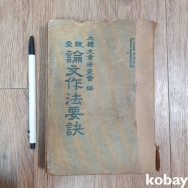 大韓文章研究會 編
論文作法要訣
kobay